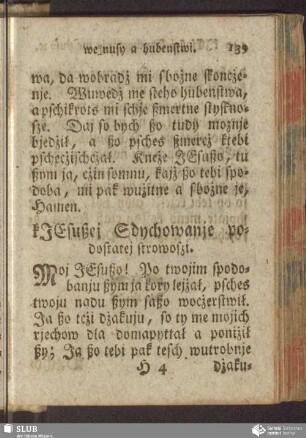 we nusy a hubenstwi. 139
wa, da wobradź mi sbożne skoncże-
nje. Wuwedź me seho hubenstwa,
a pschikrots mi schje smertne stysno-
sze. Daj so bych ßo tudy możnje
bjedżil, a ßo psches smercż ktebi
pschecżischcżal. Kneże JEsußo, tu
ßym ja, cżin somnu, kajż ßo tebi spo-
doba, mi pak wużitne a sbożne je,
Hamen.
kJEsußej Sdychowanje po-
dostatej strowoszi.
Moj JEsußo! Po twojim spodo-
banju ßym ja kory lejżał, psches
twoju nadu ßym saßo wocżerstwił.
Ja ßo tcżi dżakuju, so ty me mojich
rjechow dla domapyttał a poniżił
ßy; Ja ßo tebi pak tesch wutrobnje
H 4 dżaku-
SLUB